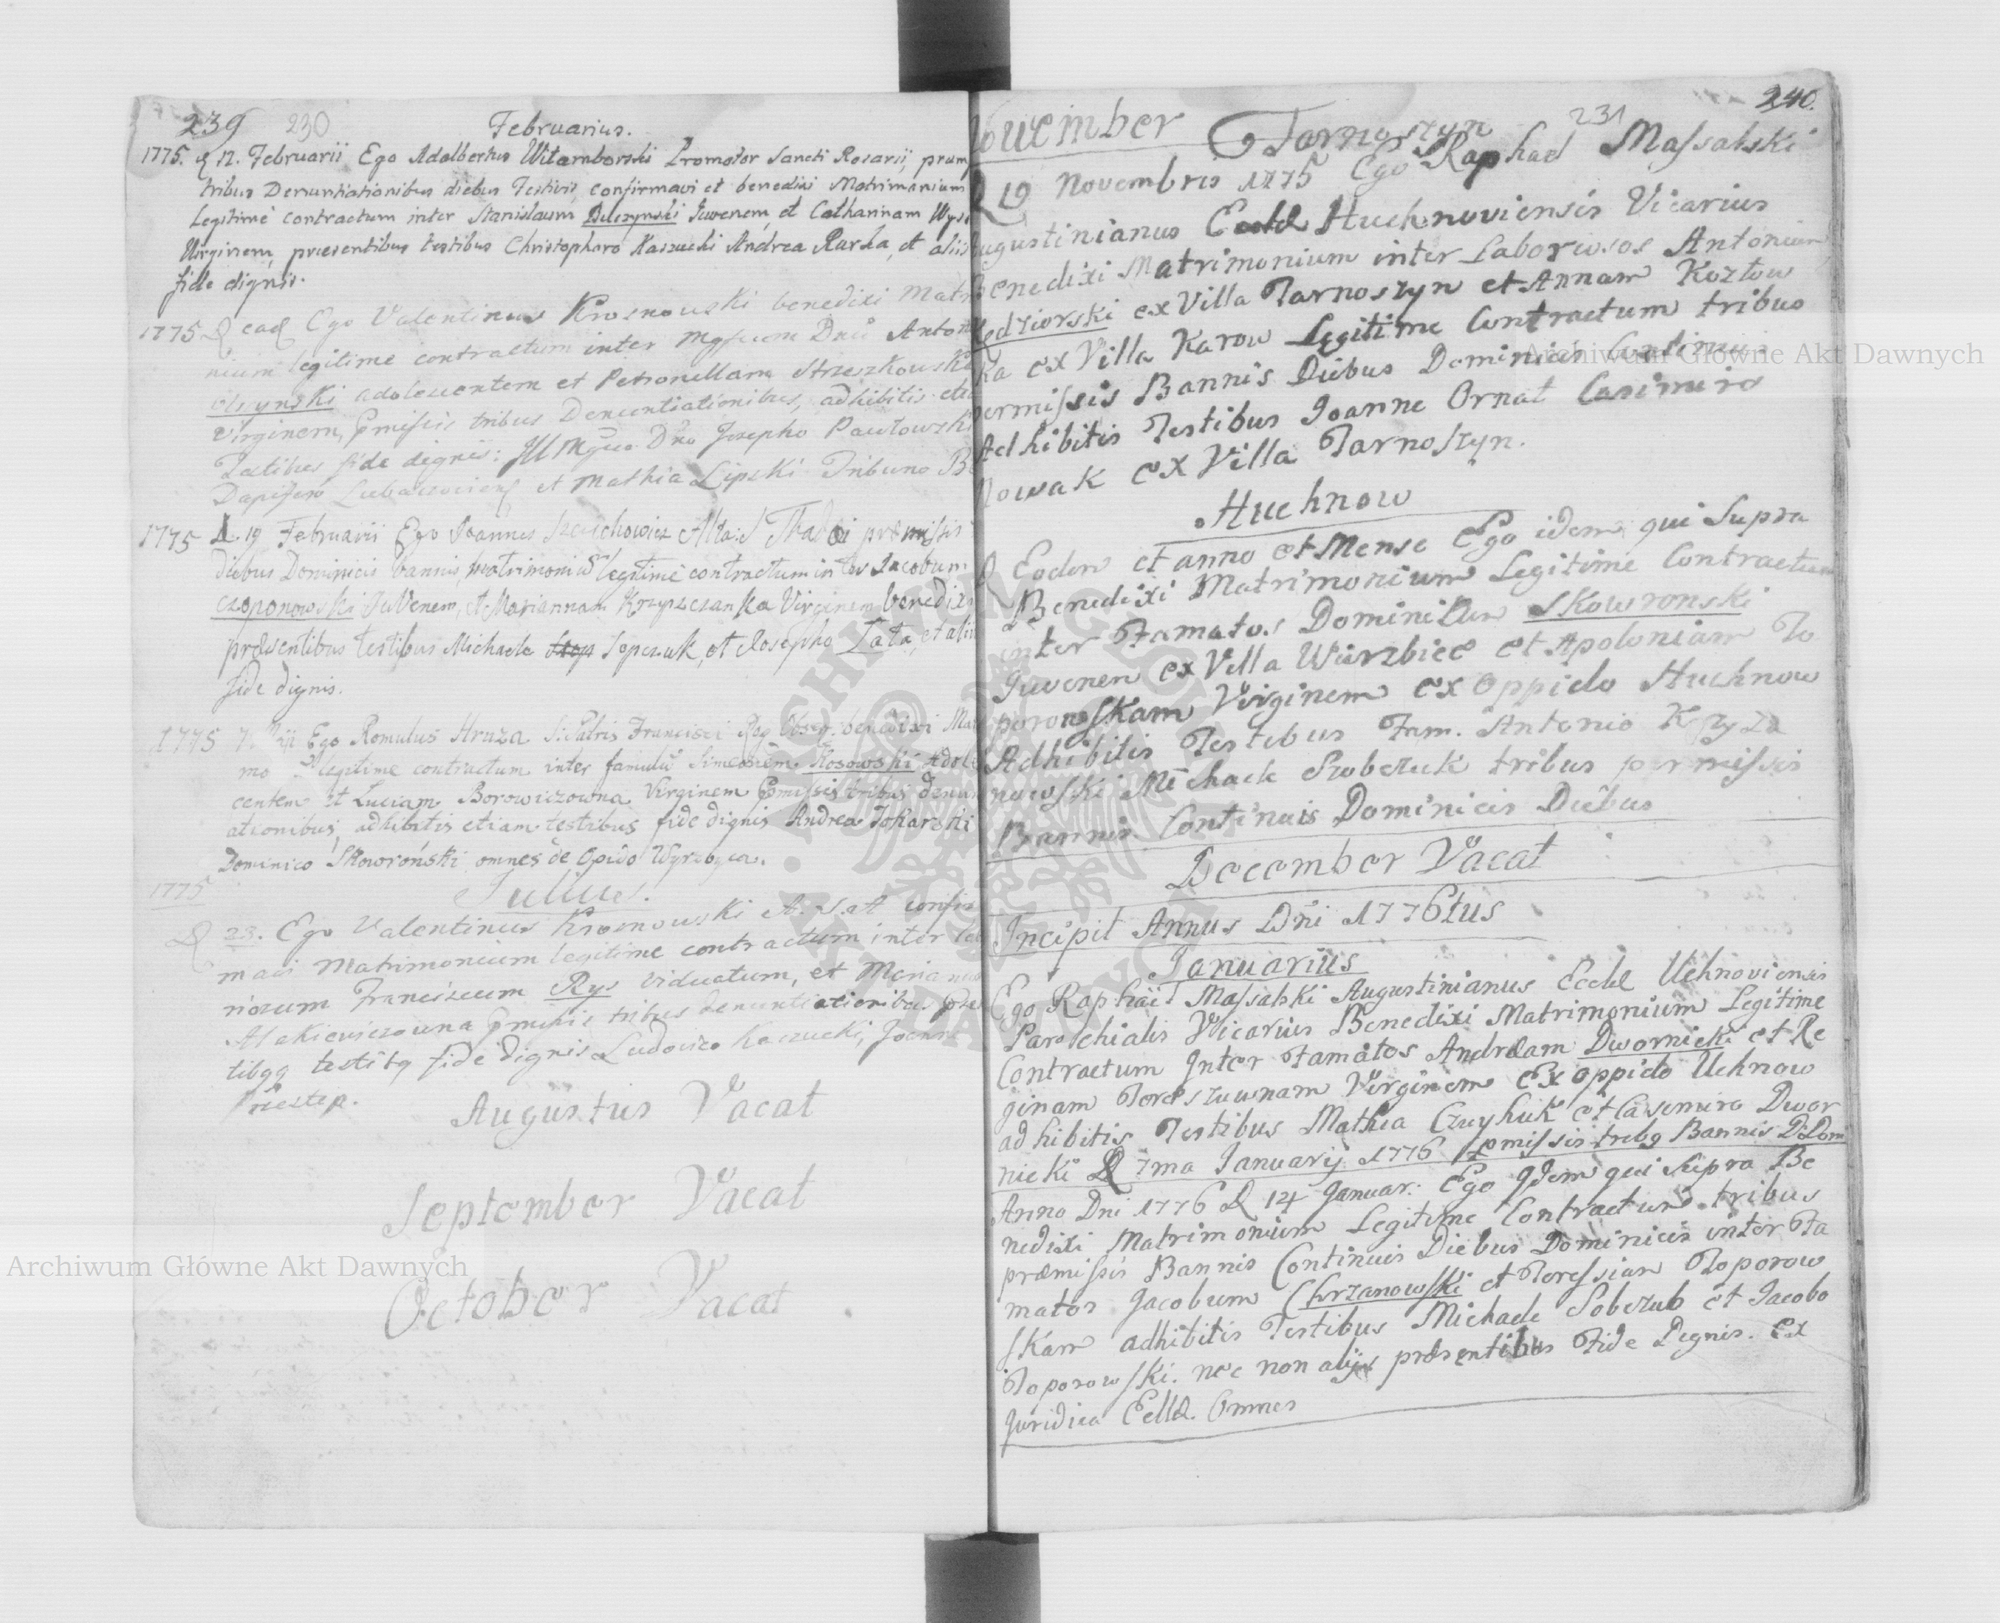 239 230
Februarius.
1775. D 12. Februarii Ego Adalbertus Witamborski Promotor Sancti Rosarii, præm
tribus Denuntiationibus diebus Festivis, confirmavi et benedixi Matrimonium
Legitimè contractum inter Stanislaum Buczynski Juvenem, et Catharinam Wys
Virginem, præsentibus testibus Christopharo Kaszucki Andrea Rarka, et aliis
fide dignis.
1775 D ead Ego Valentinus Krosnowski benedixi Matri
nium legitime contractum inter Mgficum Dnũ Anton
olszynski adolescentem et Petronellam Strzeszkowski
Virginem, pmissis tribus Denuntiationibus, adhibitis
Testibus fide dignis: Ill Mgco Dno Josepho Pawłowski
Dapifero et Mathia Lipski Tribuno B
1775 D. 19 Februarii Ego Joannes Altar: S Thadei præmissis
diebus Dominicis bannis, matrimoniũ legitimè contractum inter Jacobum
czoponowski JuVenem, et Mariannam Krzyszczanka Virginem benedixi
præsentibus testibus Michaele Sopczuk, et Josepho Lata, et aliis
fide dignis.
1775 7. Ego Romulus Hruza S: Patris Francisci Reg: Obser: benedixi Mat
mo legitime contractum inter famulũ Simeonem Kosowski Adole
centem et Luciam Borowiczowna Virginem pmissis tribus denun
ationibus, adhibitis etiam testibus fide dignis Andrea Tokarski
Dominico Skowroński omnes de Opido
1775
Julius.
D 23. Ego Valentinus Krosnowski confir
mavi Matrimonium legitime contractum inter
riosum Franciscum Rys viduatum, et Marianna
pmissis tribus denuntiationibus
tibqq testibq fide dignis Ludovico Kaszucki, Joann

Augustus Vacat
September Vacat
October Vacat
240.
231
November Tarnoszyn
D 19 Novembris 1775 Ego Raphael Massalski
Augustinianus Eccld Huchnoviensis Vicarius
Benedixi Matrimonium inter Laboriosos Antonium
Kedziorski ex Villa Tarnoszyn et Annam Kozłow
ka ex Villa Karow Legitime Contractum tribus
permissis Bannis Diebus Dominicis Continuis
Adhibitis Testibus Joanne Ornat Casimiro
Nowak ex Villa Tarnoszyn.
Huchnow
D Eodem et anno et Mense Ego idem qui Supra
Benedixi Matrimonium Legitime Contractum
inter Famatos Dominicum Skowronski
Juvenem ex Villa Wierzbice et Apoloniam To
porowskam Virginem ex Oppido Huchnow
Adhibitis Testibus Fam. Antonio Krzyza
nowski Michaele Szobczuk tribus permissis
Bannis Continuis Dominicis Diebus
December Vacat
Incipit Annus Dñi 1776tus
Januariũs
Ego Raphael Massalski Augustinianus Eccld Uchnoviensis
Parochialis Vicarius Benedixi Matrimonium Legitime
Contractum Inter Famatos Andream Dwornicki et Re
ginam Toreszuwnam Virginem Ex Oppido Uchnow
adhibitis Testibus Mathia et Casemiro Dwor
nicki D 7ma Januarij 1776 pmissis tribq Bannis D Dom
Anno Dni 1776 D 14 Januar: Ego Idem qui Supra Be
nedixi Matrimonium Legitime Contractum tribus
præmissis Bannis Continuis Diebus Dominicis inter Fa
matos Jacobum Chrzanowski et Teressiam Toporow
skam adhibitis Testibus Michaele Sobczub et Jacobo
Toporowski. nec non alijs præsentibus Fide Dignis. Ex
Juridica Eclld. Omnes
Archiwum Główne Akt Dawnych
Archiwum Główne Akt Dawnych
ARCHIWUM GŁÓWNE AKT DAWNYCH